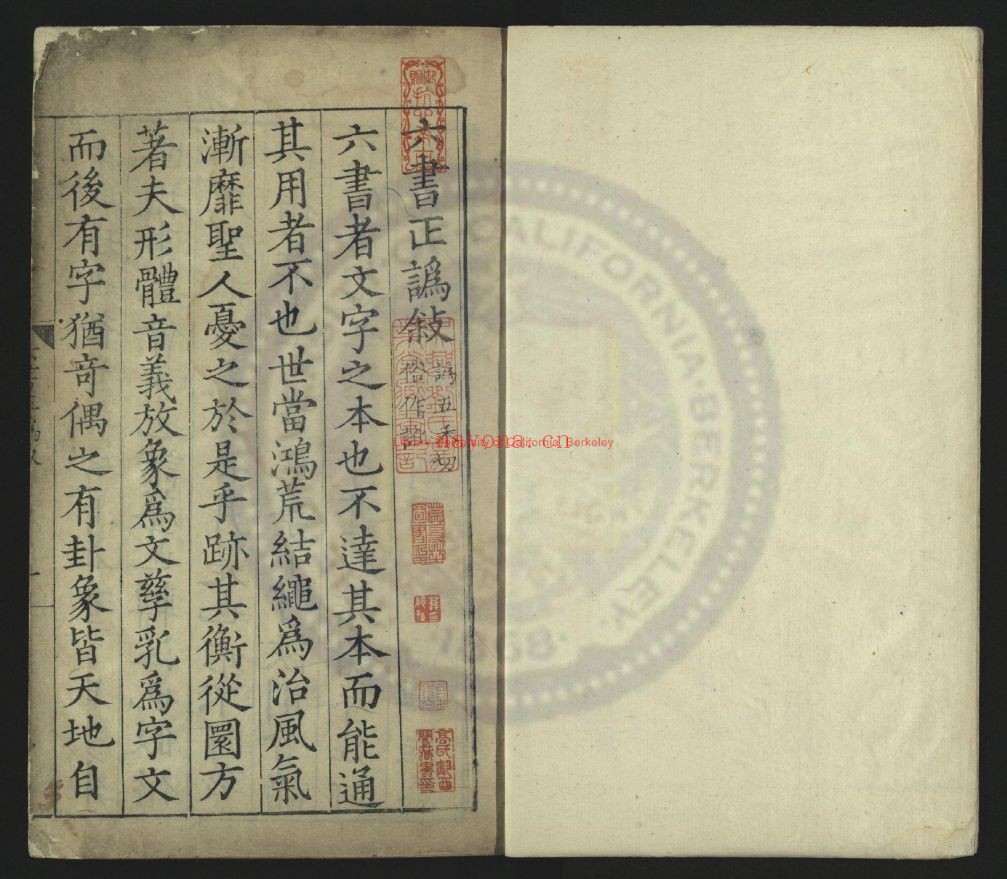 六書正譌敍 譌五禾切俗作訛
六書者文字之本也不達其本而能通
其用者不也世當鴻荒結繩爲治風氣
漸靡聖人憂之於是乎跡其衡從圜方
著夫形體音義放象爲文孳乳爲字文
而後有字猶竒偶之有卦象皆天地自
一
CALIFORNIA BERKELEY
1868
navona.cn
Berkeley